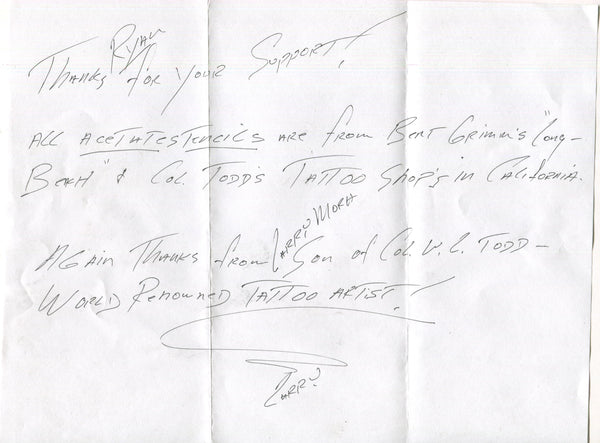 Thanks Ryan for your Support!
All acetatestencils are from Bert Grimm's "Long-
Beach" & Col. Todd's Tattoo Shop's in California.
Again Thanks from Larry Mora Son of Col. W. C. Todd -
World Renowned Tattoo Artist!
Larry